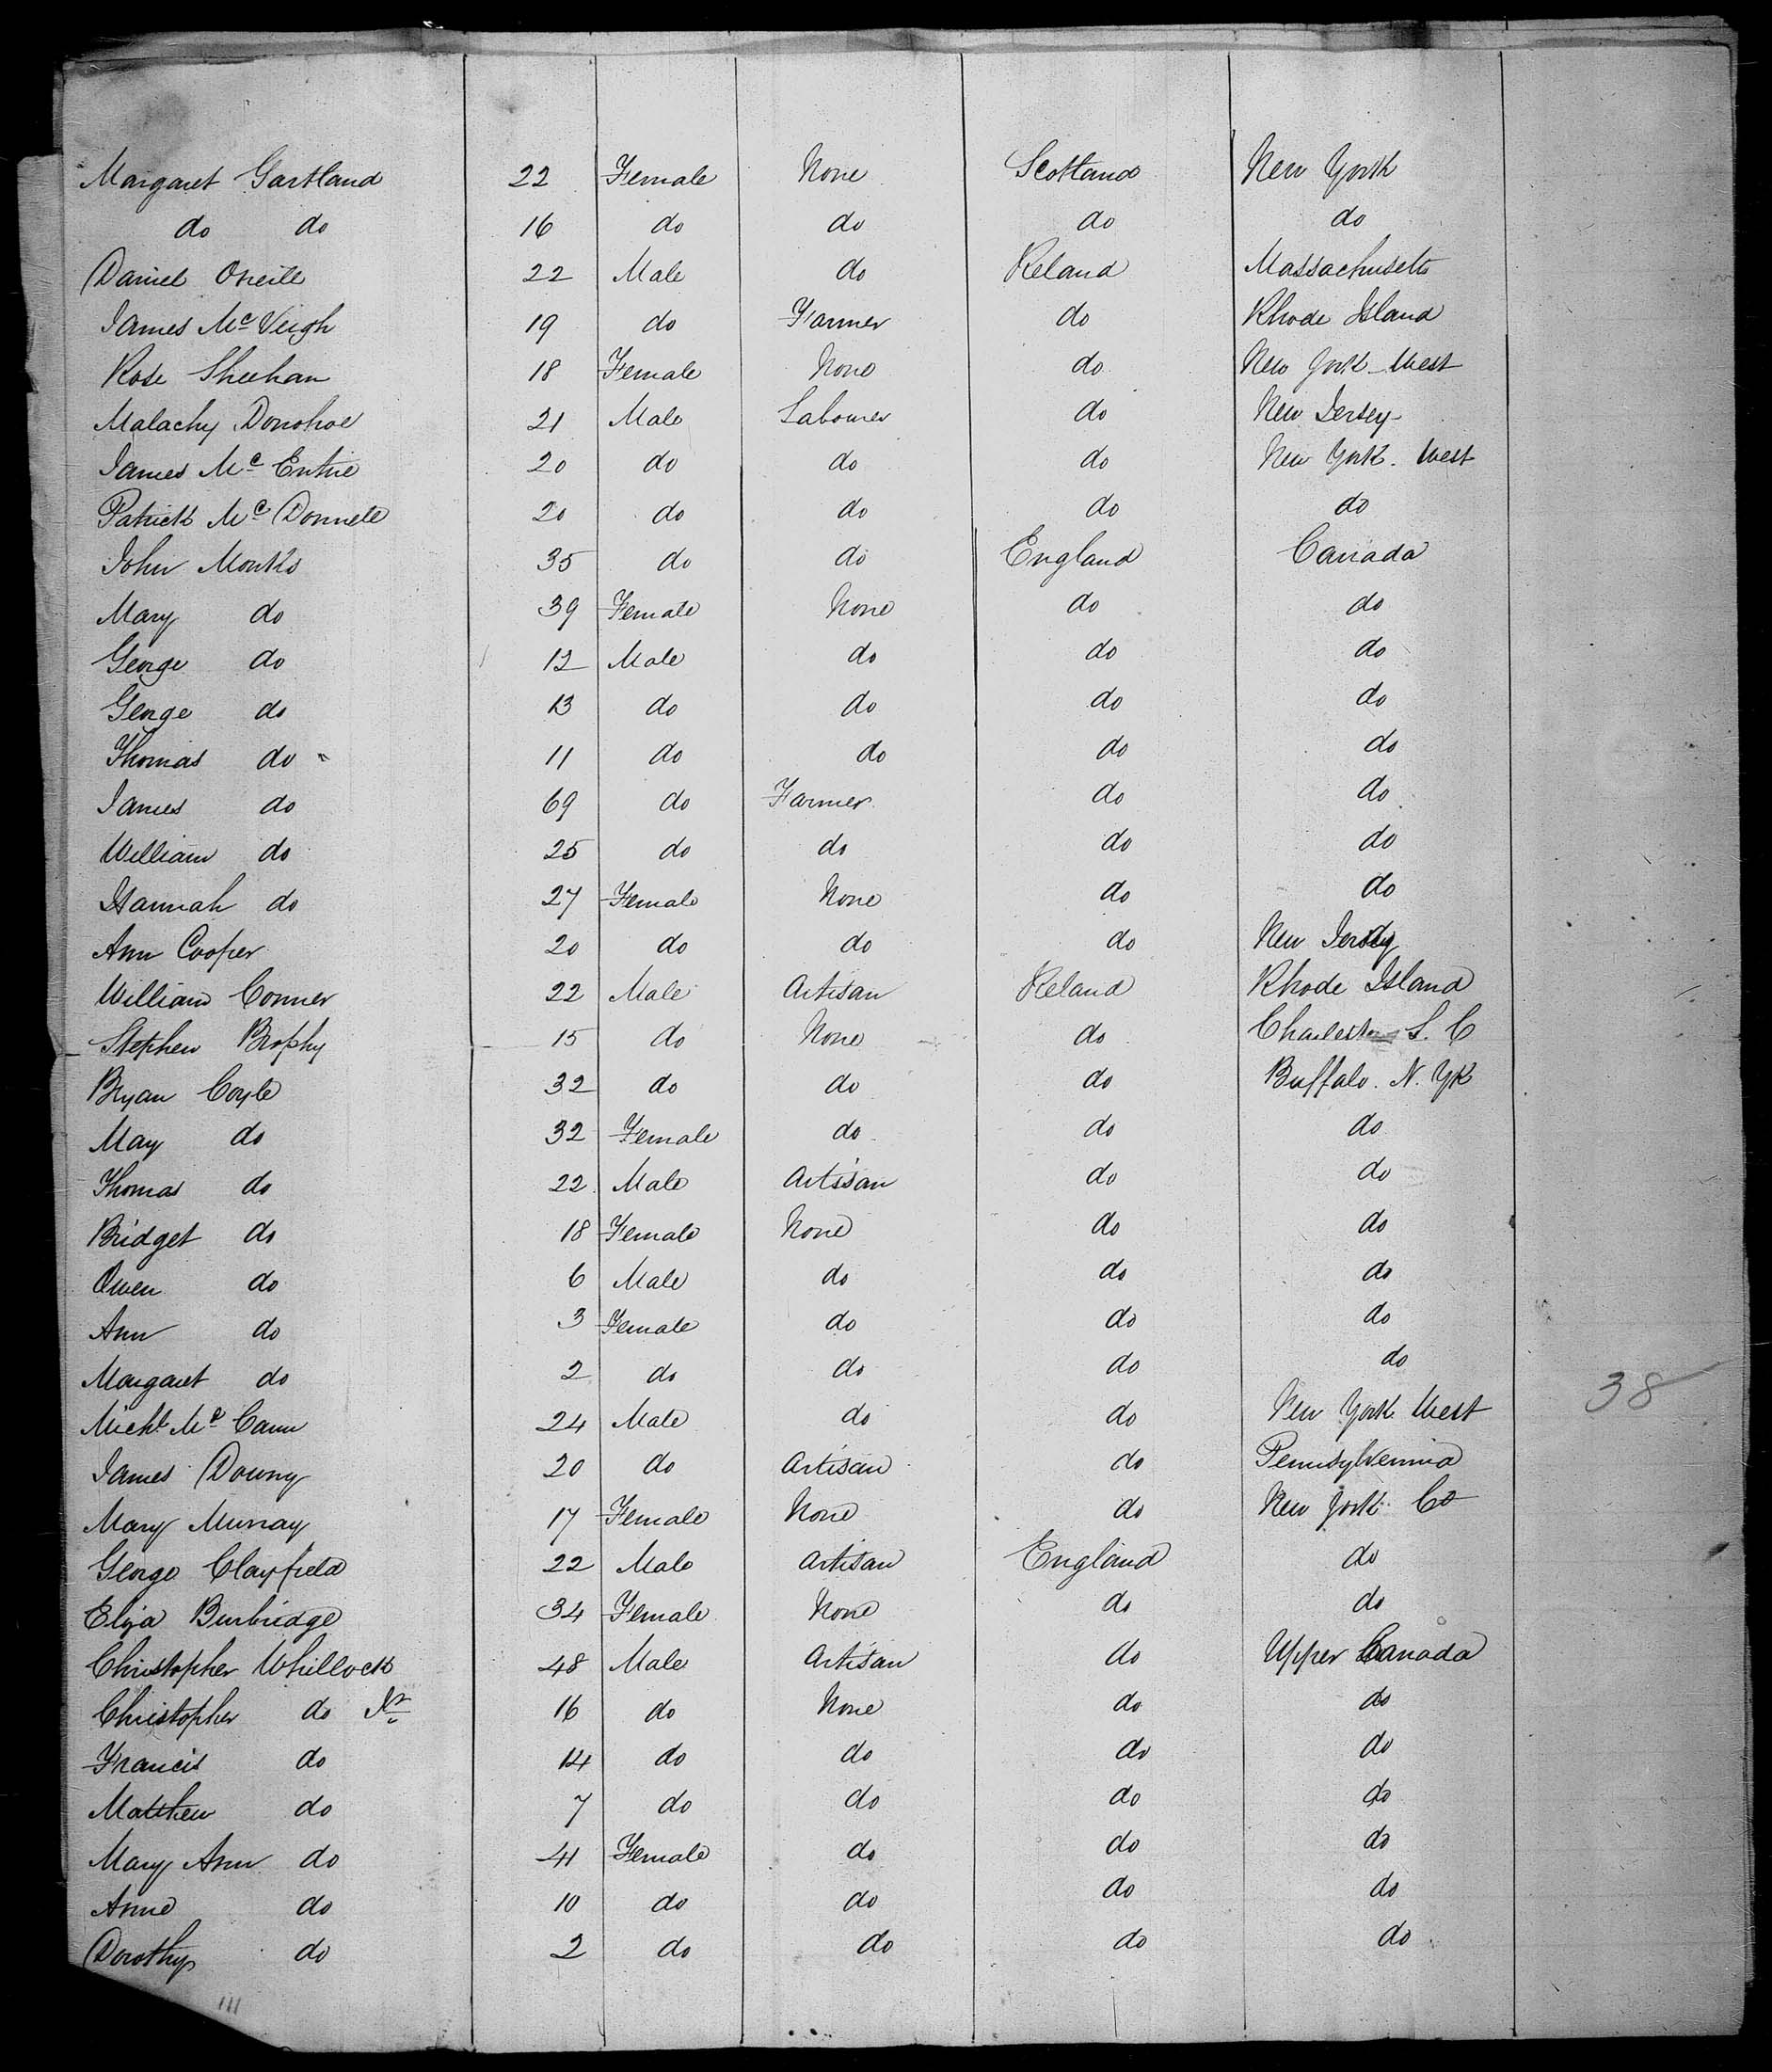 Margaret Gartland 22 Female None Scotland New York
do do 16 do do do do
Daniel Oneill 22 Male do Ireland Massachusetts
James Mc Veigh 19 do Farmer do Rhode Island
Rose Sheehan 18 Female None do New York West
Malachy Donohoe 21 Male Labourer do New Jersey
James Mc Entire 20 do do do New York West
Patrick Mc Donnell 20 do do do do
John Monks 35 do do England Canada
Mary do 39 Female None do do
George do 12 Male do do do
George do 13 do do do do
Thomas do 11 do do do do
James do 69 do Farmer do do
William do 25 do do do do
Hannah do 27 Female None do do
Ann Cooper 20 do do do New Jersey
William Conner 22 Male Artisan Ireland Rhode Island
Stephen Brophy 15 do None do Charleston S. C
Bryan Coyle 32 do do do Buffalo. N. Yk
May do 32 Female do do do
Thomas do 22 Male Artisan do do
Bridget do 18 Female None do do
Owen do 6 Male do do do
Ann do 3 Female do do do
Margaret do 2 do do do do
Michl Mc Cann 24 Male do do New York West 38
James Downy 20 do Artisan do Pennsylvennia
Mary Murray 17 Female None do New York Co
George Clayfield 22 Male Artisan England do
Eliza Burbridge 34 Female None do do
Christopher Whillock 48 Male Artisan do Upper Canada
Christopher do Jr 16 do None do do
Francis do 14 do do do do
Matthew do 7 do do do do
Mary Ann do 41 Female do do do
Anne do 10 do do do do
Dorothy do 2 do do do do
111